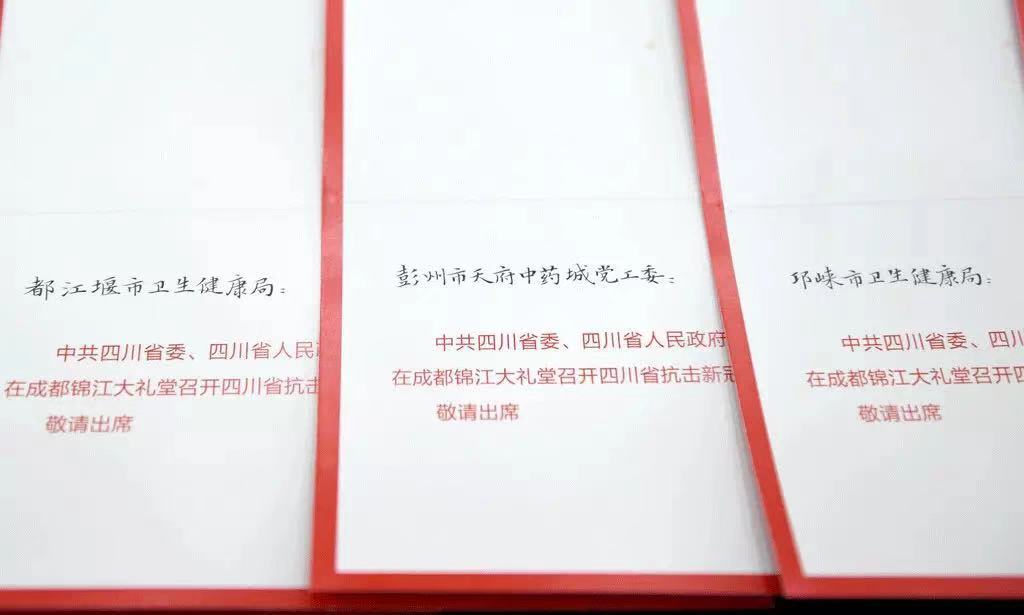 都江堰市卫生健康局：
中共四川省委、四川省人民
在成都锦江大礼堂召开四川省抗击
敬请出席
彭州市天府中药城党工委：
中共四川省委、四川省人民政府
在成都锦江大礼堂召开四川省抗击新冠
敬请出席
邛崃市卫生健康局：
中共四川省委、四川
在成都锦江大礼堂召开四
敬请出席